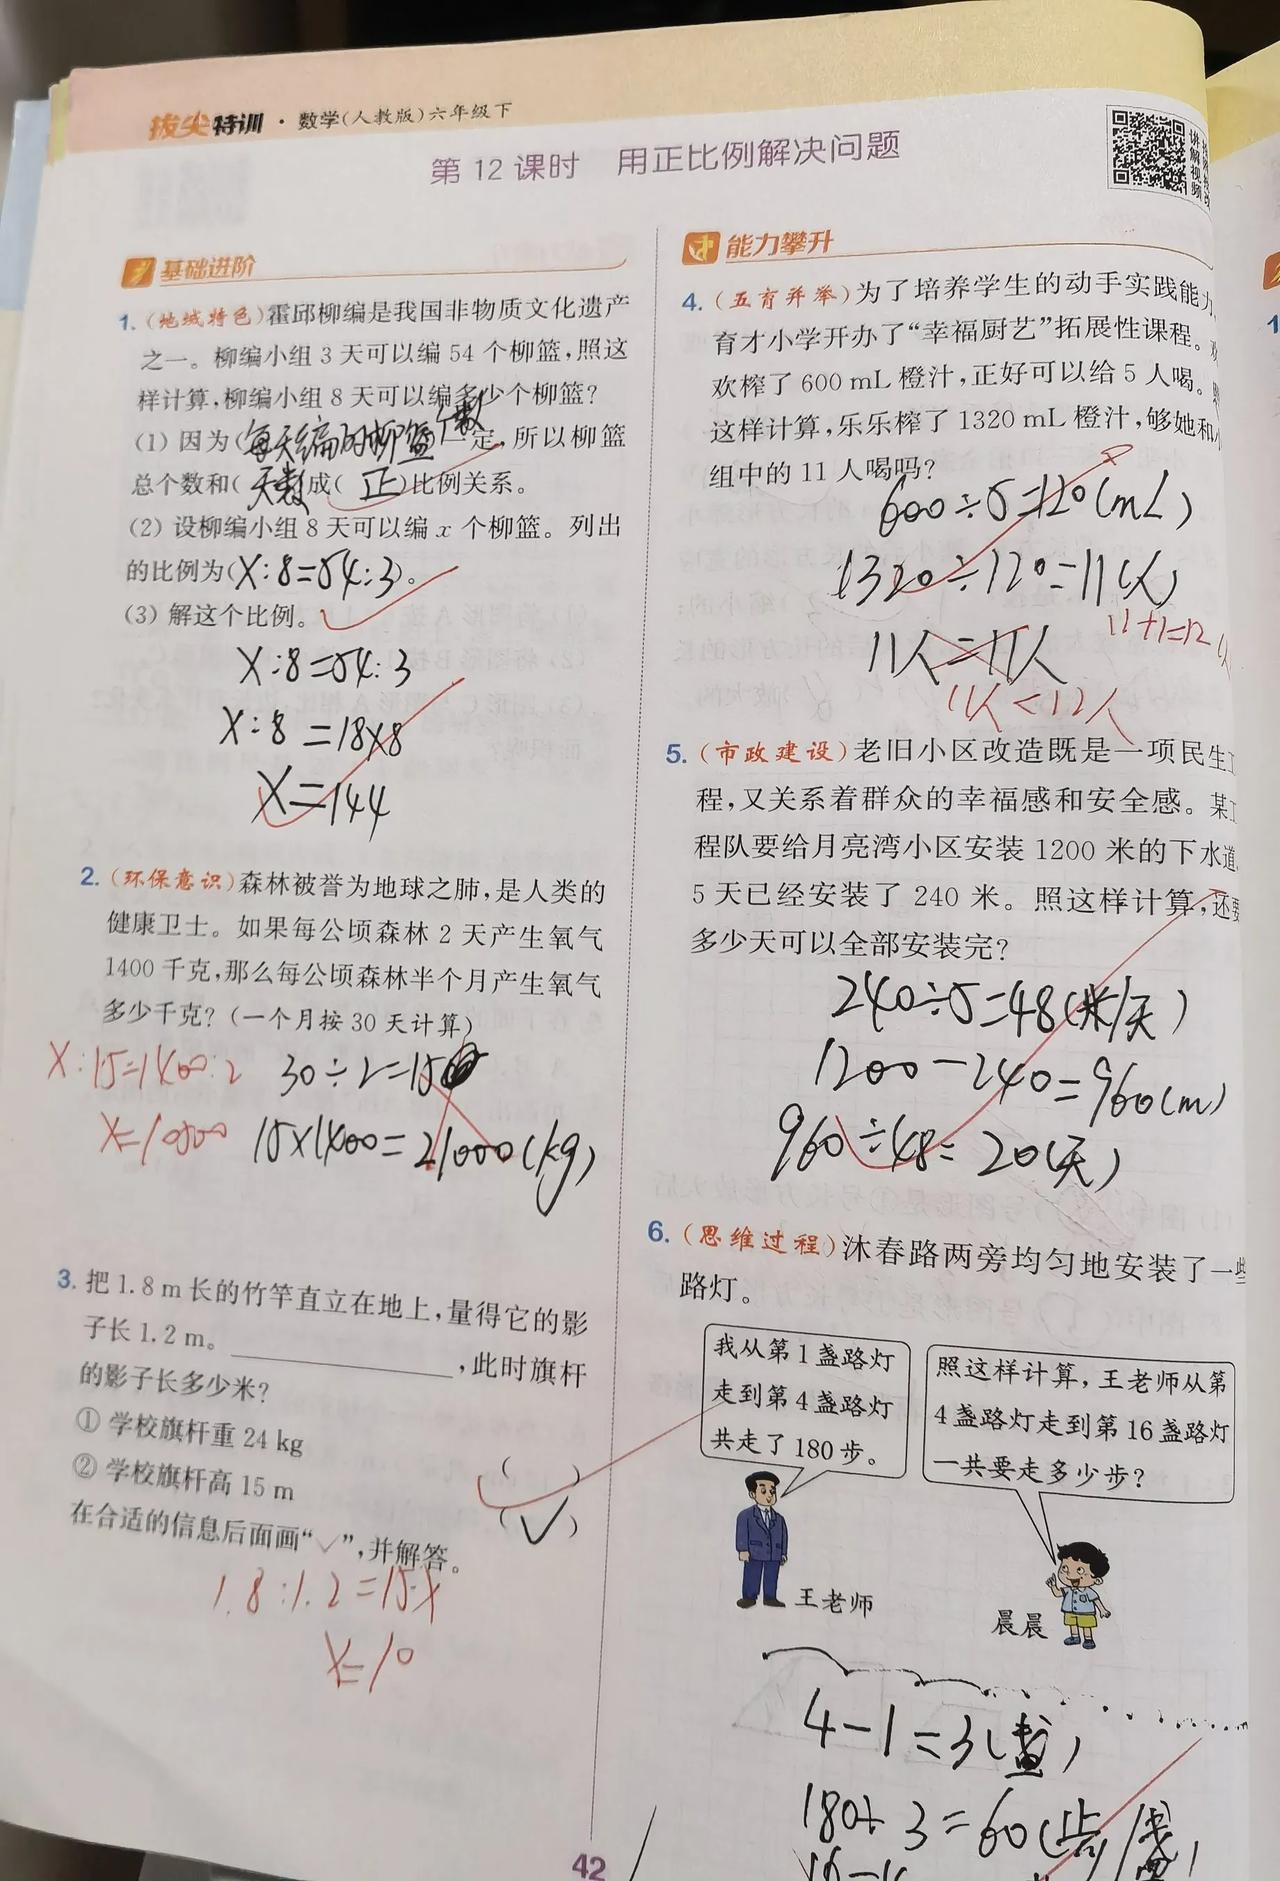 拔尖特训·数学(人教版)六年级下
第12课时 用正比例解决问题
基础进阶
1.(地域特色)霍邱柳编是我国非物质文化遗产
之一。柳编小组3天可以编54个柳篮,照这
样计算,柳编小组8天可以编多少个柳篮?
(1) 因为(每天编的柳篮个数一定,所以柳篮
总个数和(天数成(正)比例关系。
(2) 设柳编小组8天可以编x个柳篮。列出
的比例为(X:8=54:3)。
(3) 解这个比例。
X:8=54:3
X:8=18×8
X=144
2.(环保意识)森林被誉为地球之肺,是人类的
健康卫士。如果每公顷森林2天产生氧气
1400千克,那么每公顷森林半个月产生氧气
多少千克?(一个月按30天计算)
X:15=1400:2
30÷2=15
X=10500
15×1400=21000(kg)
3.把1.8m长的竹竿直立在地上,量得它的影
子长1.2m。 ,此时旗杆
的影子长多少米?
①学校旗杆重24kg ( )
②学校旗杆高15m (✓)
在合适的信息后面画“✓”,并解答。
1.8:1.2=15:X
X=10
能力攀升
4.(五育并举)为了培养学生的动手实践能力
育才小学开办了“幸福厨艺”拓展性课程。
欢榨了600mL橙汁,正好可以给5人喝。
这样计算,乐乐榨了1320mL橙汁,够她和小
组中的11人喝吗?
600÷5=120(mL)
1320÷120=11(人)
11+1=12
11人=11人
11人<12人
5.(市政建设)老旧小区改造既是一项民生工
程,又关系着群众的幸福感和安全感。某工
程队要给月亮湾小区安装1200米的下水道
5天已经安装了240米。照这样计算,还要
多少天可以全部安装完?
240÷5=48(米/天)
1200-240=960(m)
960÷48=20(天)
6.(思维过程)沐春路两旁均匀地安装了一些
路灯。
我从第1盏路灯
走到第4盏路灯
共走了180步。
照这样计算,王老师从第
4盏路灯走到第16盏路灯
一共要走多少步?
王老师
晨晨
4-1=3(盏)
180÷3=60(步/盏)
42